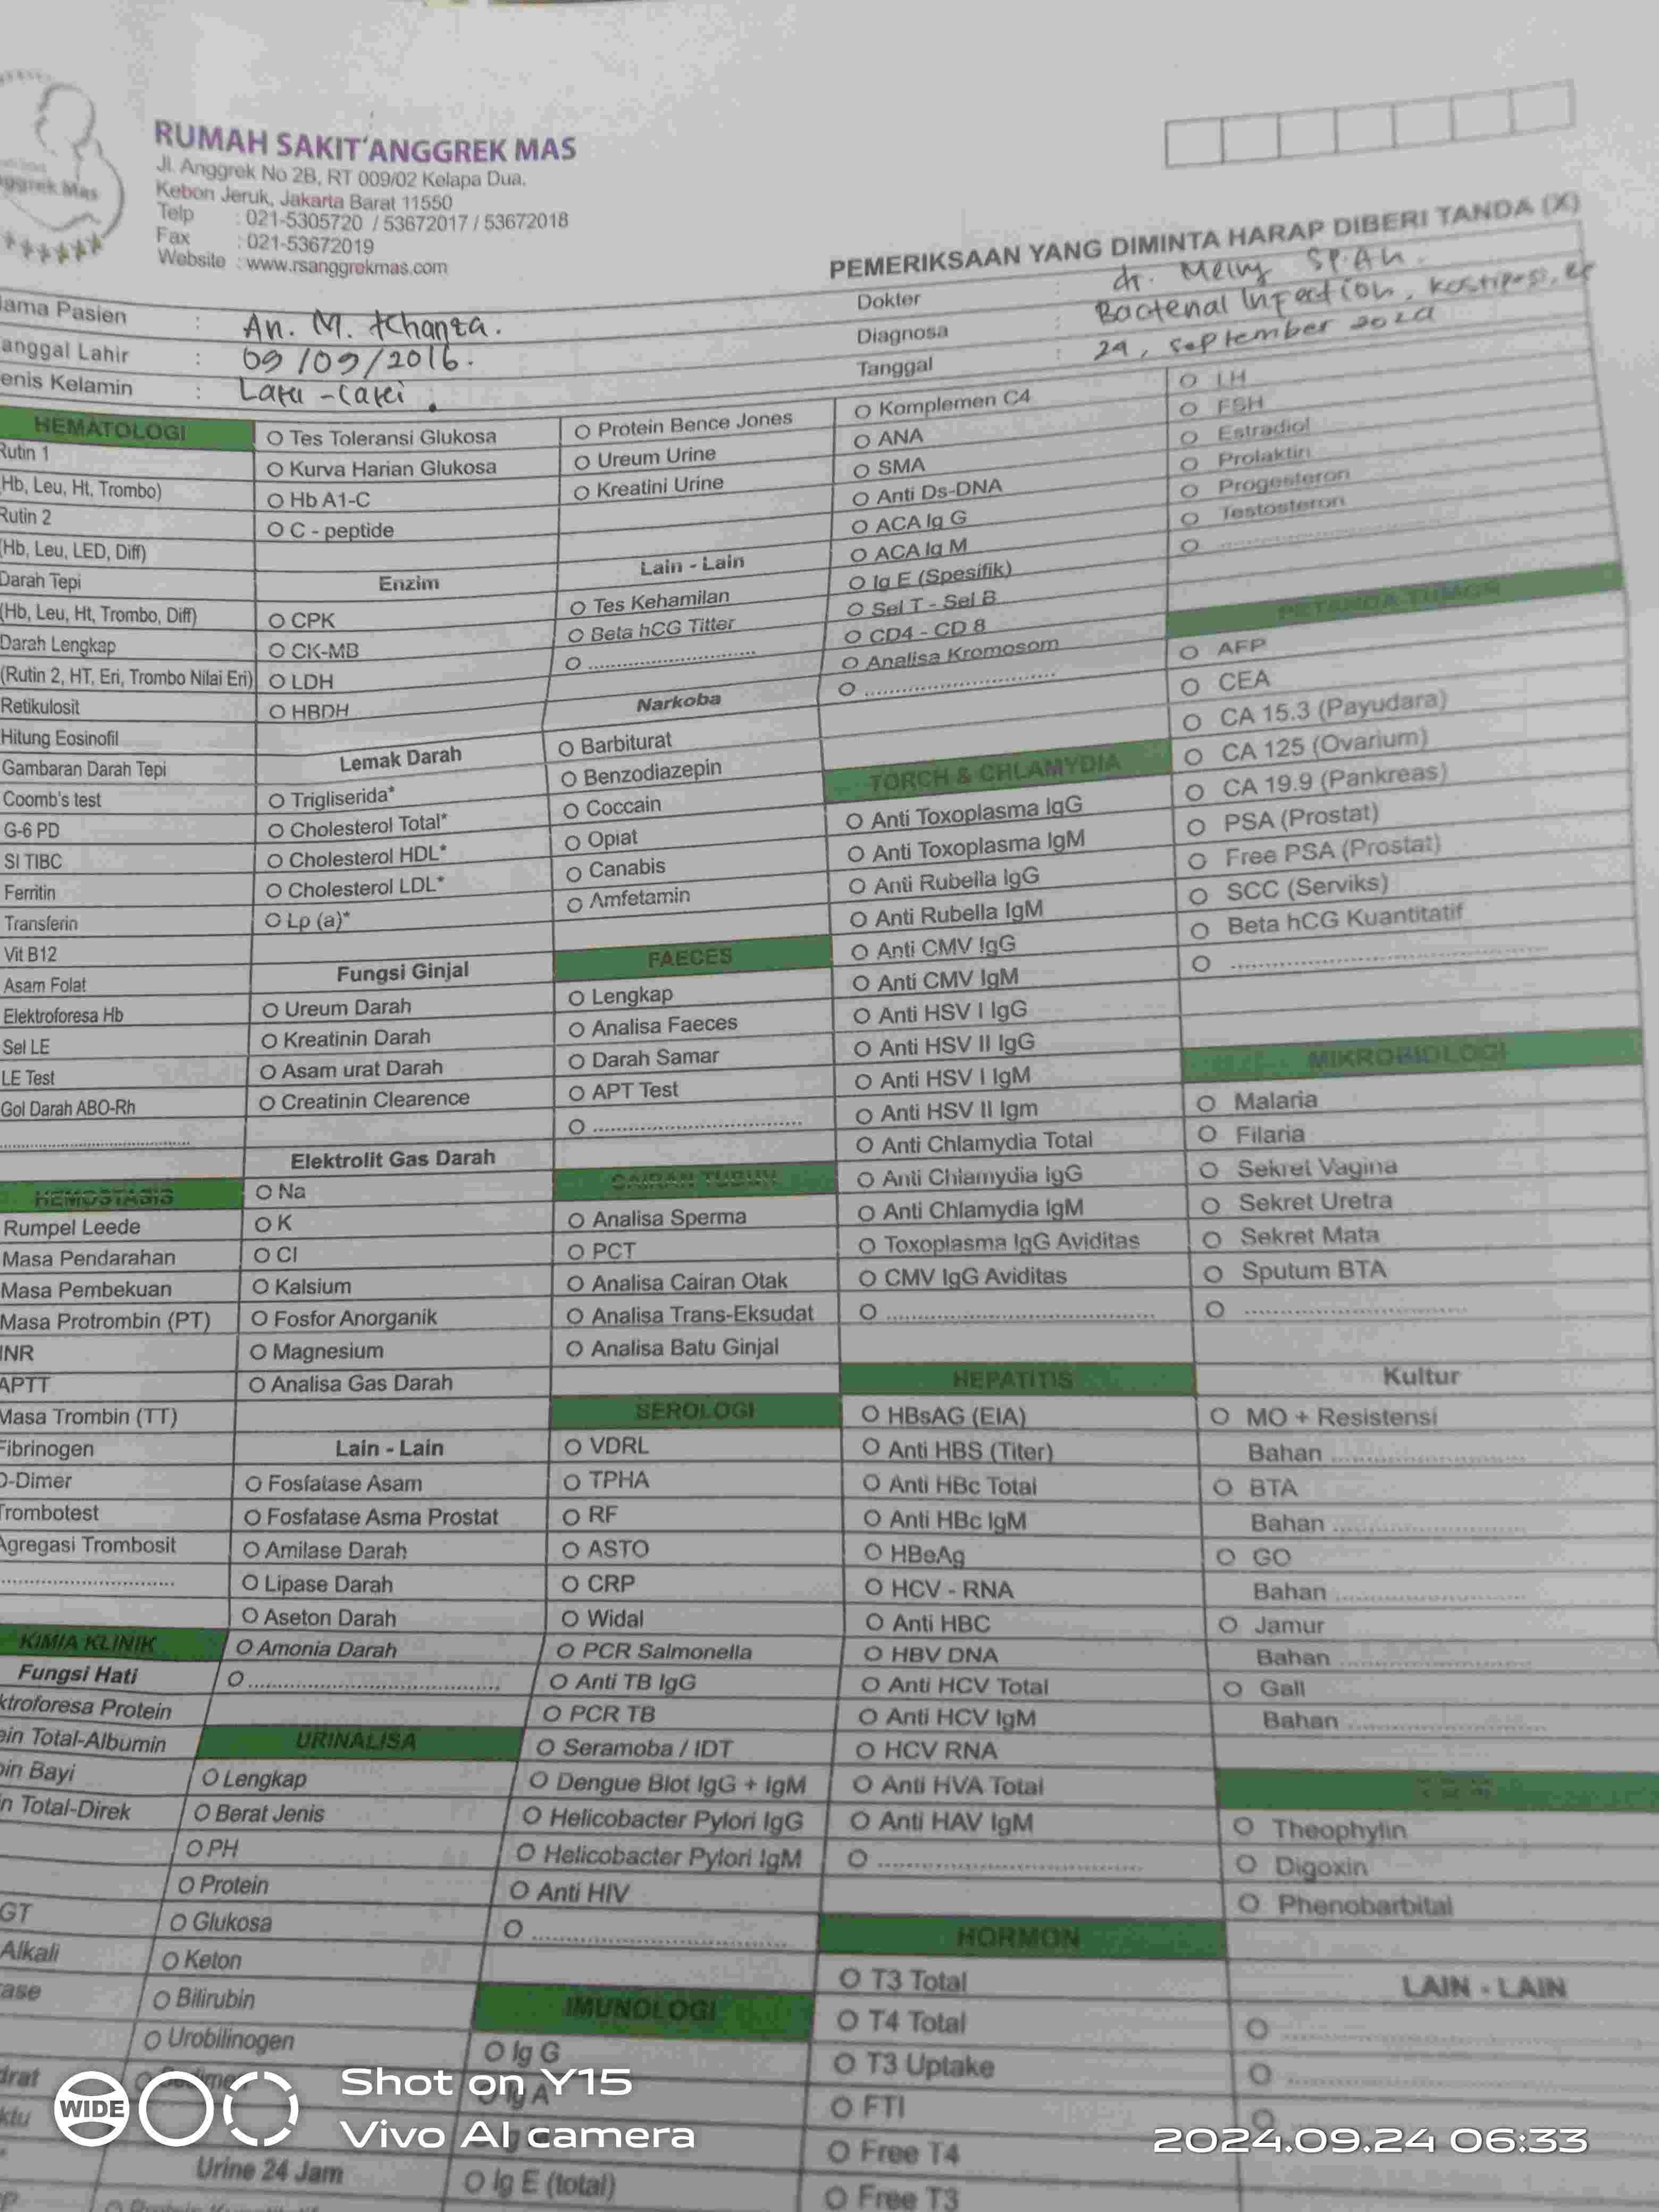 RUMAH SAKIT'ANGGREK MAS
Jl. Anggrek No 2B, RT 009/02 Kelapa Dua.
Kebon Jeruk, Jakarta Barat 11550
Telp : 021-5305720 / 53672017 / 53672018
Fax : 021-53672019
Website : www.rsanggrekmas.com
nggrek Mas
PEMERIKSAAN YANG DIMINTA HARAP DIBERI TANDA (X)
ama Pasien : An. M.
anggal Lahir : 09/09/2016.
enis Kelamin :
Dokter : dr. Meiny SP.An.
Diagnosa : Bacterial Infection,
Tanggal : 24, September
HEMATOLOGI
Rutin 1
(Hb, Leu, Ht, Trombo)
Rutin 2
(Hb, Leu, LED, Diff)
Darah Tepi
(Hb, Leu, Ht, Trombo, Diff)
Darah Lengkap
(Rutin 2, HT, Eri, Trombo Nilai Eri)
Retikulosit
Hitung Eosinofil
Gambaran Darah Tepi
Coomb's test
G-6 PD
SI TIBC
Ferritin
Transferin
Vit B12
Asam Folat
Elektroforesa Hb
Sel LE
LE Test
Gol Darah ABO-Rh
HEMOSTASIS
Rumpel Leede
Masa Pendarahan
Masa Pembekuan
Masa Protrombin (PT)
INR
APTT
Masa Trombin (TT)
Fibrinogen
D-Dimer
Trombotest
Agregasi Trombosit
KIMIA KLINIK
Fungsi Hati
ktroforesa Protein
ein Total-Albumin
bin Bayi
n Total-Direk
GT
Alkali
ase
drat
ktu
Tes Toleransi Glukosa
Kurva Harian Glukosa
Hb A1-C
C - peptide
Enzim
CPK
CK-MB
LDH
HBDH
Lemak Darah
Trigliserida*
Cholesterol Total*
Cholesterol HDL*
Cholesterol LDL*
Lp (a)*
Fungsi Ginjal
Ureum Darah
Kreatinin Darah
Asam urat Darah
Creatinin Clearence
Elektrolit Gas Darah
Na
K
Cl
Kalsium
Fosfor Anorganik
Magnesium
Analisa Gas Darah
Lain - Lain
Fosfatase Asam
Fosfatase Asma Prostat
Amilase Darah
Lipase Darah
Aseton Darah
Amonia Darah
URINALISA
Lengkap
Berat Jenis
PH
Protein
Glukosa
Keton
Bilirubin
Urobilinogen
Urine 24 Jam
Protein Bence Jones
Ureum Urine
Kreatini Urine
Lain - Lain
Tes Kehamilan
Beta hCG Titter
Narkoba
Barbiturat
Benzodiazepin
Coccain
Opiat
Canabis
Amfetamin
FAECES
Lengkap
Analisa Faeces
Darah Samar
APT Test
CAIRAN TUBUH
Analisa Sperma
PCT
Analisa Cairan Otak
Analisa Trans-Eksudat
Analisa Batu Ginjal
SEROLOGI
VDRL
TPHA
RF
ASTO
CRP
Widal
PCR Salmonella
Anti TB IgG
PCR TB
Seramoba / IDT
Dengue Blot IgG + IgM
Helicobacter Pylori IgG
Helicobacter Pylori IgM
Anti HIV
IMUNOLOGI
Ig G
Ig A
Ig E (total)
Komplemen C4
ANA
SMA
Anti Ds-DNA
ACA Ig G
ACA Ig M
Ig E (Spesifik)
Sel T - Sel B
CD4 - CD 8
Analisa Kromosom
TORCH & CHLAMYDIA
Anti Toxoplasma IgG
Anti Toxoplasma IgM
Anti Rubella IgG
Anti Rubella IgM
Anti CMV IgG
Anti CMV IgM
Anti HSV I IgG
Anti HSV II IgG
Anti HSV I IgM
Anti HSV II Igm
Anti Chlamydia Total
Anti Chlamydia IgG
Anti Chlamydia IgM
Toxoplasma IgG Aviditas
CMV IgG Aviditas
HEPATITIS
HBsAG (EIA)
Anti HBS (Titer)
Anti HBc Total
Anti HBc IgM
HBeAg
HCV - RNA
Anti HBC
HBV DNA
Anti HCV Total
Anti HCV IgM
HCV RNA
Anti HVA Total
Anti HAV IgM
HORMON
T3 Total
T4 Total
T3 Uptake
FTI
Free T4
Free T3
LH
FSH
Estradiol
Prolaktin
Progesteron
Testosteron
PETANDA TUMOR
AFP
CEA
CA 15.3 (Payudara)
CA 125 (Ovarium)
CA 19.9 (Pankreas)
PSA (Prostat)
Free PSA (Prostat)
SCC (Serviks)
Beta hCG Kuantitatif
MIKROBIOLOGI
Malaria
Filaria
Sekret Vagina
Sekret Uretra
Sekret Mata
Sputum BTA
Kultur
MO + Resistensi
Bahan
BTA
Bahan
GO
Bahan
Jamur
Bahan
Gall
Bahan
Theophylin
Digoxin
Phenobarbital
LAIN - LAIN
WIDE
Shot on Y15
Vivo AI camera
2024.09.24 06:33